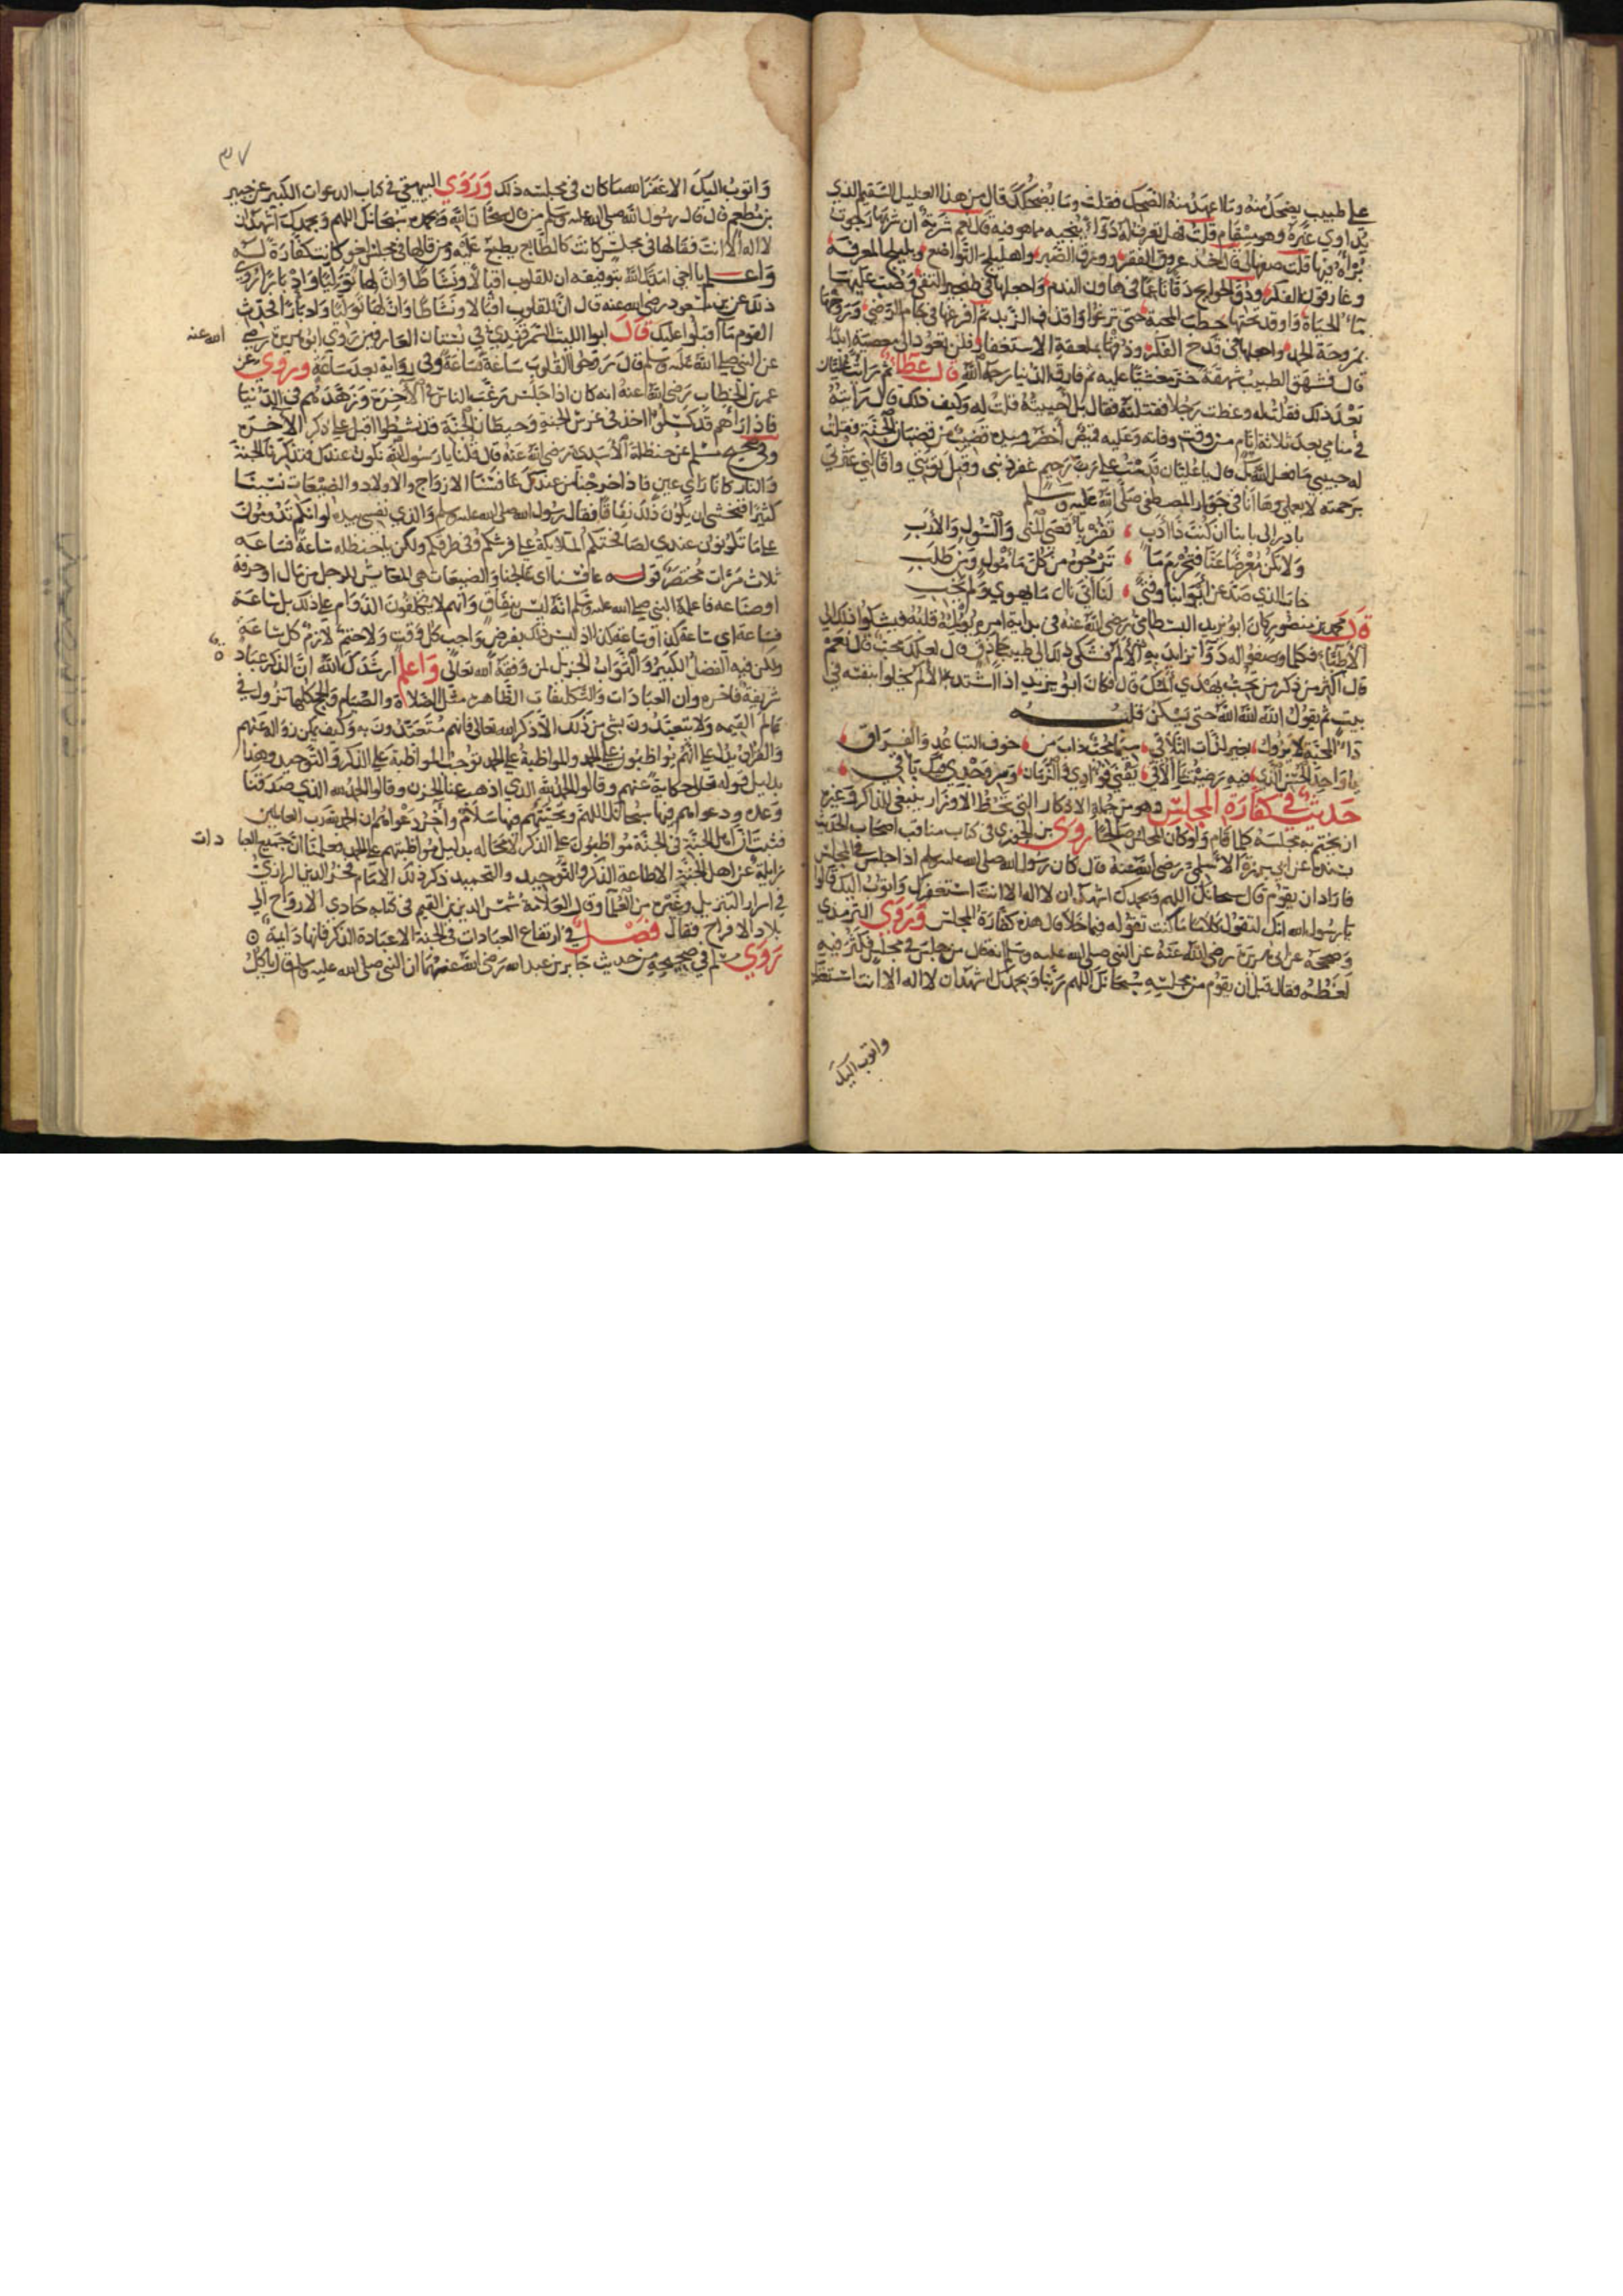 على طبيب يضحك منه وما عهد منه الضحك فقلت وما يضحكك قال من هذا العليل السقيم الذي
يداوي غيره وهو سقام قلت فهل تعرف له دواء ينجيه مما هو فيه قال نعم شربة ان شربها رجوت
برأه فيها قلت صفها لي قال خذ عروق الفقر وورق الصبر واهليلج التواضع وبليلج المعرفة
وغاريقون الفكر ودق الجوانح دقا ناعما في هاون الندم واجعلها في طنجير التقى وصب عليها
ماء الحياء واوقد تحتها حطب المحبة حتى ترغوا واقذف الزبد ثم افرغها في جام الرضى وروحها
بمروحة الحمد واجعلها في قدح الفكر وذقها بملعقة الاستغفار فلن تعود الى معصية ابدا
قال فشهق الطبيب شهقة خر مغشيا عليه ثم فارق الدنيا رحمه الله قال عطاء ثم رأيت غلثان
بعد ذلك فقلت له وعظت رجلا فقتلته فقال بل احييته قلت له وكيف ذلك قال رأيته
في منامي بعد ثلاثة ايام من وقت وفاته وعليه قميص أخضر وبيده قضيب من قضبان الجنة فقلت
له حبيبي ما فعل الله بك قال يا غلثان قدمت على رب رحيم غفر ذنبي وقبل توبتي واقالني عثرتي
برحمته لا بعملي وها انا في جوار المصطفى صلى الله عليه وسلم
بادر الى بابنا ان كنت ذا ادب ، تفز بأقصى المنى والسول والأدب
ولا تكن معرضا عنا فتحرم ما ، ترجوه من كل مأمول ومن طلب
خاب الذي صد عن أبوابنا وفتى ، لنا اتى نال ما يهوى ولم يخب
قال محمد بن منصور كان ابو يزيد البسطامي رضي الله عنه في بداية امره يؤلمه قلبه فيشكوا ذلك الى
الأطباء فكلما وصفوا له دواء تزايد به الألم فشكى ذلك الى طبيب حاذق قال لعلك محب قال نعم
قال أكثر من ذكر من تحب يهدي ألمك قال فكان ابو يزيد اذا اشتد به الألم يخلوا بنفسه في
بيت ثم يقول الله الله الله حتى يسكن قلبه
داء المحبة لا يزول ، بغير لذات التلاقي ،
يا واحد الحسن الذي فيه رضيت بما ألاقي
حديث في كفارة المجلس وهو من جملة الاذكار التي تحط الاوزار ينبغي للذاكر وغيره
ان يختم به مجلسه كلما قام ولو كان المجلس صالحا روى بن الجوزي في كتاب مناقب اصحاب الحديث
بسنده عن ابي برزة الاسلمي رضي الله عنه قال كان رسول الله صلى الله عليه وسلم اذا جلس في المجلس
فاراد ان يقوم قال سبحانك اللهم وبحمدك اشهد ان لا اله الا انت استغفرك واتوب اليك قالوا
يا رسول الله انك لتقول كلاما ما كنت تقوله فيما خلا قال هذه كفارة المجلس وروى الترمذي
وصححه عن ابي هريرة رضي الله عنه عن النبي صلى الله عليه وسلم انه قال من جلس في مجلس فكثر فيه
لغطه وقال قبل ان يقوم من مجلسه سبحانك اللهم ربنا وبحمدك اشهد ان لا اله الا انت استغفرك
واتوب اليك
٣٧
واتوب اليك الا غفر الله ما كان في مجلسه ذلك وروي البيهقي في كتاب الدعوات الكبير عن جبير
بن مطعم قال قال رسول الله صلى الله عليه وسلم من قال سبحان الله وبحمده سبحانك اللهم وبحمدك اشهد ان
لا اله الا انت فقالها في مجلس كانت كالطابع يطبع عليه ومن قالها في مجلس لغو كانت كفارة له
واعلم يا اخي امدك الله بتوفيقه ان للقلوب اقبالا ونشاطا وان لها توليا وادبارا روى
ذلك عن بن مسعود رضي الله عنه قال ان للقلوب اقبالا ونشاطا وان لها توليا وادبارا فحدث
القوم ما اقبلوا عليك قال ابوا الليث السمرقندي في بستان العارفين روى ابو هريرة رضي الله عنه
عن النبي صلى الله عليه وسلم قال روحوا القلوب ساعة فساعة وفي رواية بعد ساعة وروي عن
عمر بن الخطاب رضي الله عنه انه كان اذا جلس رغب الناس في الآخرة وزهدهم في الدنيا
فاذا رآهم قد كسلوا اخذ في غرس الجنة وحيطان الجنة قد نشطوا اقبل على ذكر الآخرة
وفي صحيح مسلم عن حنظلة الأسيدي رضي الله عنه قال قلنا يا رسول الله نكون عندك فتذكرنا الجنة
والنار كانا راي عين فاذا خرجنا من عندك عافسنا الازواج والاولاد والضيعات نسينا
كثيرا فنخشى ان يكون ذلك نفاقا فقال رسول الله صلى الله عليه وسلم والذي نفسي بيده لو انكم تدومون
على ما تكونون عندي لصافحتكم الملائكة على فرشكم وفي طرقكم ولكن يا حنظله ساعة فساعه
ثلاث مرات مختصر قوله عافسنا اي عالجنا والضيعات هي المعايش للرجل من مال او حرفة
او صناعه فاعلمه النبي صلى الله عليه وسلم انه ليس بنفاق وانهم لا يكلفون الدوام على ذلك بل ساعة
فساعة اي ساعة كذا وساعة كذا اذ ليس ذلك بفرض واجب كل وقت ولا حتم لازم كل ساعة
ولكن فيه الفضل الكبير والثواب الجزيل لمن وفقه الله تعالى واعلم ارشدك الله ان الذكر عباده
شريفة فاخره وان العبادات والتكليفات الظاهره مثل الصلاة والصيام والحج كلها تزول في
عالم القيمه ولا يتعبدون بشي من ذلك الا ذكر الله تعالى فانهم متعبدون به وكيف يمكن زواله عنهم
والقران يدل على انهم يواظبون على الحمد والمواظبة على الحمد توجب المواظبة على الذكر والتوحيد وهذا
بدليل قوله تعالى حكاية عنهم وقالوا الحمد لله الذي اذهب عنا الحزن وقالوا الحمد لله الذي صدقنا
وعده ودعواهم فيها سبحانك اللهم وتحيتهم فيها سلام وآخر دعواهم ان الحمد لله رب العالمين
فثبت ان اهل الجنة في الجنة مواظبون على الذكر لا محاله بدليل مواظبتهم على الحمد فعلمنا ان جميع العبادات
زايلة عن اهل الجنة الا طاعة الذكر والتوحيد والتحميد ذكر ذلك الامام فخر الدين الرازي
في اسرار التنزيل وغيره من العلما وقال العلامة شمس الدين بن القيم في كتابه حادي الارواح الى
بلاد الافراح فقال فصل في ارتفاع العبادات في الجنة الا عبادة الذكر فانها دايمة
روي مسلم في صحيحه من حديث جابر بن عبد الله رضي الله عنهما ان النبي صلى الله عليه وسلم قال ياكل